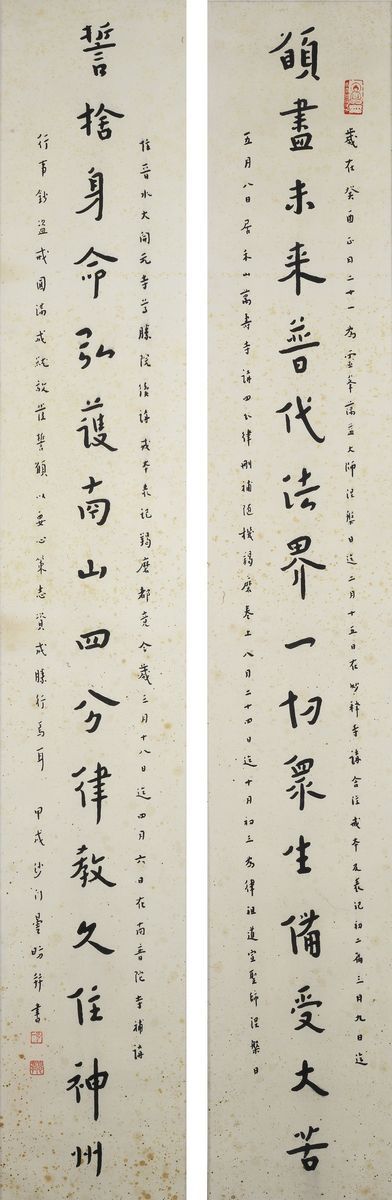 願盡未來普代法界一切眾生備受大苦
歲在癸酉正月二十一為靈峯蕅益大師涅槃日迄二月十五日在妙釋寺講含注戒本及表記初二篇三月九日迄
五月八日居禾山萬壽寺講四分律刪補隨機羯磨卷上八月二十四日迄十月初三為律祖道宣聖師涅槃日
誓捨身命弘護南山四分律教久住神州
晉水大開元寺尊勝院後講戒本表記羯磨都竟今歲三月十八日迄四月六日在南普陀寺補講
行事鈔盜戒圓滿成就故發誓願以要心策志資成勝行焉耳 甲戌沙門曇昉并書